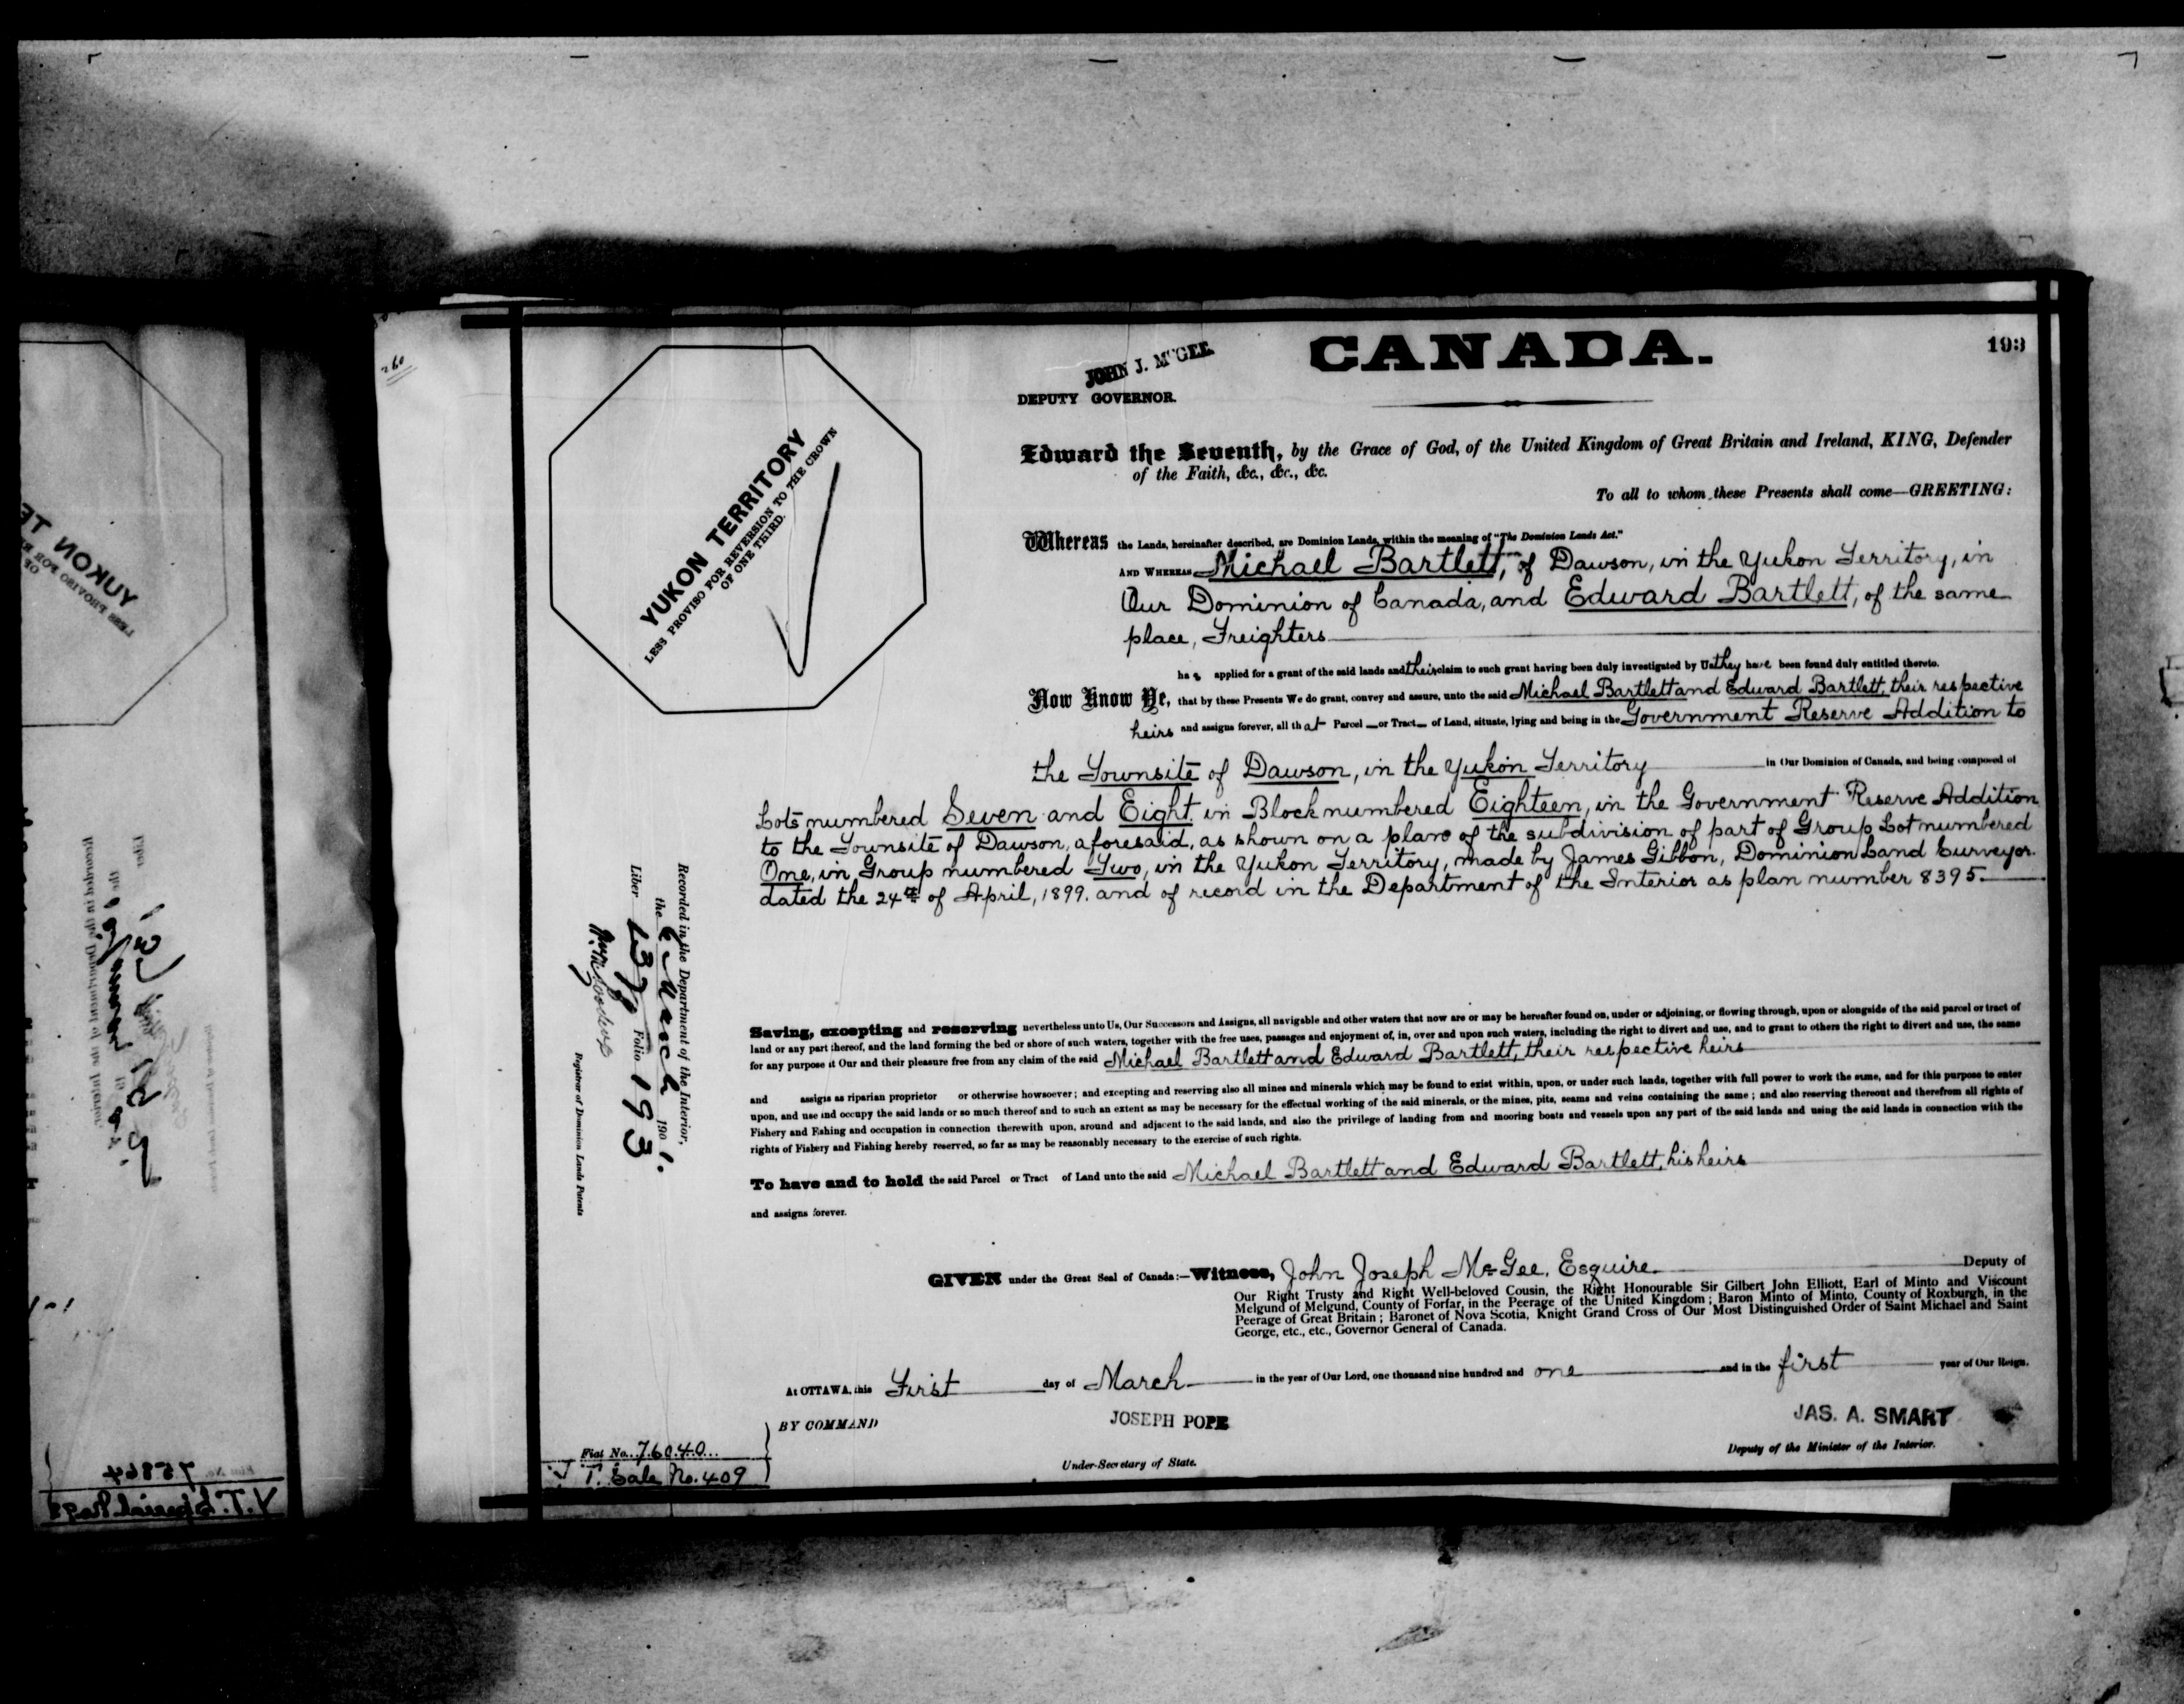 260
193
CANADA.
JOHN J. McGEE
DEPUTY GOVERNOR.
YUKON TERRITORY
LESS PROVISO FOR REVERSION TO THE CROWN
OF ONE THIRD.
Edward the Seventh, by the Grace of God, of the United Kingdom of Great Britain and Ireland, KING, Defender
of the Faith, &c., &c., &c.
To all to whom these Presents shall come—GREETING:
Whereas the Lands, hereinafter described, are Dominion Lands, within the meaning of "The Dominion Lands Act."
AND WHEREAS Michael Bartlett, of Dawson, in the Yukon Territory, in
Our Dominion of Canada, and Edward Bartlett, of the same
place, Freighters
applied for a grant of the said lands and their claim to such grant having been duly investigated by Us they have been found duly entitled thereto.
Now Know Ye, that by these Presents We do grant, convey and assure, unto the said Michael Bartlett and Edward Bartlett, their respective
heirs and assigns forever, all that Parcel or Tract of Land, situate, lying and being in the Government Reserve Addition to
the Townsite of Dawson, in the Yukon Territory in Our Dominion of Canada, and being composed of
Lots numbered Seven and Eight, in Block numbered Eighteen, in the Government Reserve Addition
to the Townsite of Dawson, aforesaid, as shown on a plan of the subdivision of part of Group Lot numbered
One, in Group numbered Two, in the Yukon Territory, made by James Gibbon, Dominion Land Surveyor.
dated the 24th of April, 1899. and of record in the Department of the Interior as plan number 8395.
Recorded in the Department of the Interior,
the 6 March 1901.
Liber 137 Folio 193
Registrar of Dominion Lands Patents
Saving, excepting and reserving nevertheless unto Us, Our Successors and Assigns, all navigable and other waters that now are or may be hereafter found on, under or adjoining, or flowing through, upon or alongside of the said parcel or tract of
land or any part thereof, and the land forming the bed or shore of such waters, together with the free uses, passages and enjoyment of, in, over and upon such waters, including the right to divert and use, and to grant to others the right to divert and use, the same
for any purpose at Our and their pleasure free from any claim of the said Michael Bartlett and Edward Bartlett, their respective heirs
and assigns as riparian proprietor or otherwise howsoever; and excepting and reserving also all mines and minerals which may be found to exist within, upon, or under such lands, together with full power to work the same, and for this purpose to enter
upon, and use and occupy the said lands or so much thereof and to such an extent as may be necessary for the effectual working of the said minerals, or the mines, pits, seams and veins containing the same; and also reserving thereout and therefrom all rights of
Fishery and Fishing and occupation in connection therewith upon, around and adjacent to the said lands, and also the privilege of landing from and mooring boats and vessels upon any part of the said lands and using the said lands in connection with the
rights of Fishery and Fishing hereby reserved, so far as may be reasonably necessary to the exercise of such rights.
To have and to hold the said Parcel or Tract of Land unto the said Michael Bartlett and Edward Bartlett, his heirs
and assigns forever.
GIVEN under the Great Seal of Canada:—Witness, John Joseph McGee, Esquire Deputy of
Our Right Trusty and Right Well-beloved Cousin, the Right Honourable Sir Gilbert John Elliott, Earl of Minto and Viscount
Melgund of Melgund, County of Forfar, in the Peerage of the United Kingdom; Baron Minto of Minto, County of Roxburgh, in the
Peerage of Great Britain; Baronet of Nova Scotia, Knight Grand Cross of Our Most Distinguished Order of Saint Michael and Saint
George, etc., etc., Governor General of Canada.
At OTTAWA, this First day of March in the year of Our Lord, one thousand nine hundred and one and in the first year of Our Reign.
BY COMMAND
JOSEPH POPE
Under-Secretary of State.
JAS. A. SMART
Deputy of the Minister of the Interior.
Fiat No. 76040
T. Sale No. 409